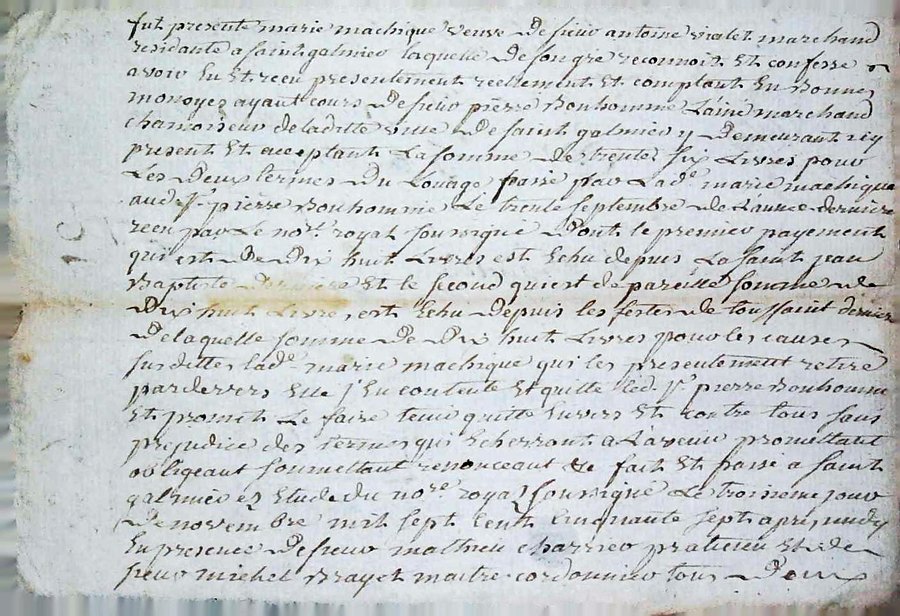 fut presente marie machique veuve de sieur antoine vialet marchand
residante a saint galmier laquelle de son gré reconnoit et confesse
avoir eu et receu presentement reellement et comptant en bonnes
monoyes ayant cours de sieur pierre Bonhomme L'ainé marchand
chamoiseur de ladille ville de saint galmier y demeurant icy
present et acceptant La somme de trente six Livres pour
Les deux termes du Louage passé par Lad.e marie machique
aud. s.r pierre Bonhomme Le trente septembre de L'année derniere
receu par Le no.re royal soussigné dont le premier payement
qui est de dix huit Livres est Echu depuis La saint jean
Baptiste derniere Et le second qui est de pareille somme de
dix huit Livre, est Echu depuis les festes de toussaint dernier
de laquelle somme de dix huit Livres pour les causes
susdittes lad.e marie machique qui les presentement retiré
pardevers Elle s'En contente Et quitte led. s.r pierre Bonhomme
Et promet Le faire tenir quitte Envers Et contre tous sans
prejudice des termes qui Echerront a L'avenir promettant
obligeant soumettant renonceant &c fait Et passé a saint
galmier ez Etude du no.re royal soussigné Le troisieme jour
de novembre mil sept Cent Cinquante sept apres midy
En presence de sieur mathieu charrier praticien Et de
sieur michel Brayet maitre cordonnier tous deux